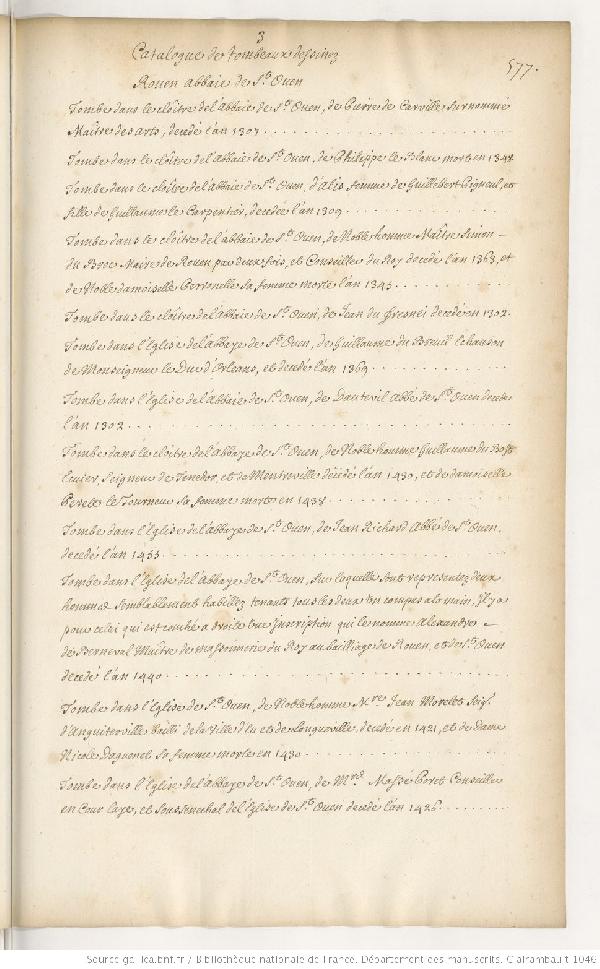 3
Catalogue de tombeaux dessinez
577.
Rouen abbaïe de St. Ouen
Tombe dans le cloître de l'Abbaïe de St. Ouen, de Pierre de Carville surnommé
Maître des arts, decedé l'an 1307
Tombe dans le cloître de l'abbaïe de St. Ouen, de Philippe le Blanc mort en 1348
Tombe dans le cloître de l'abbaïe de St. Ouen, d'Alis femme de Guillebert et
fille de Guillaume le Carpentier, decedée l'an 1309
Tombe dans le cloître de l'abbaïe de St. Ouen, de Noble homme Maître Simon
du Broc Maire de Rouen par deux fois, et Conseiller du Roy decedé l'an 1363, et
de Noble damoiselle Perronelle sa femme morte l'an 1345
Tombe dans le cloître de l'abbaïe de St. Ouen, de Jean du fresnei decedé en 1302.
Tombe dans l'Eglise de l'abbaye de St. Ouen, de Guillaume du Breuil Echanson
de Monseigneur le Duc d'Orleans, et decedé l'an 1369
Tombe dans l'Eglise de l'abbaïe de St. Ouen, de Dauteuil Abbé de St. Ouen decedé
l'an 1302
Tombe dans le cloître de l'Abbaye de St. Ouen, de Noble homme Guillaume du Bosc
Seigneur de Tendos, et de Montreville décédé l'an 1430, et de damoiselle
Perette le Tourneur sa femme morte en 1438
Tombe dans l'Eglise de l'abbaye de St. Ouen, de Jean Richard Abbé de St. Ouen,
decedé l'an 1455
Tombe dans l'Eglise de l'Abbaye de St. Ouen, sur laquelle sont representez deux
hommes semblablement habillez tenants tous les deux un compas a la main, Il y a
pour celui qui est couché a droite une Inscription qui le nomme Alexandre
de Berneval Maître de massonnerie du Roy au bailliage de Rouen, et de St. Ouen
decedé l'an 1440
Tombe dans l'Eglise de St. Ouen, de Noble homme Mre Jean Morelet Seigr.
d'Anguiterville bailli de la Ville d'Eu et de Longueville, decedé en 1421, et de Dame
Nicole Daguenet sa femme morte en 1430
Tombe dans l'Eglise de l'Abbaye de St. Ouen, de Mre Masse Poret Conseiller
en Cour laye, et sous senechal de l'Eglise de St. Ouen decedé l'an 1426
Source gallica.bnf.fr / Bibliothèque nationale de France. Département des manuscrits. Clairambault 1046